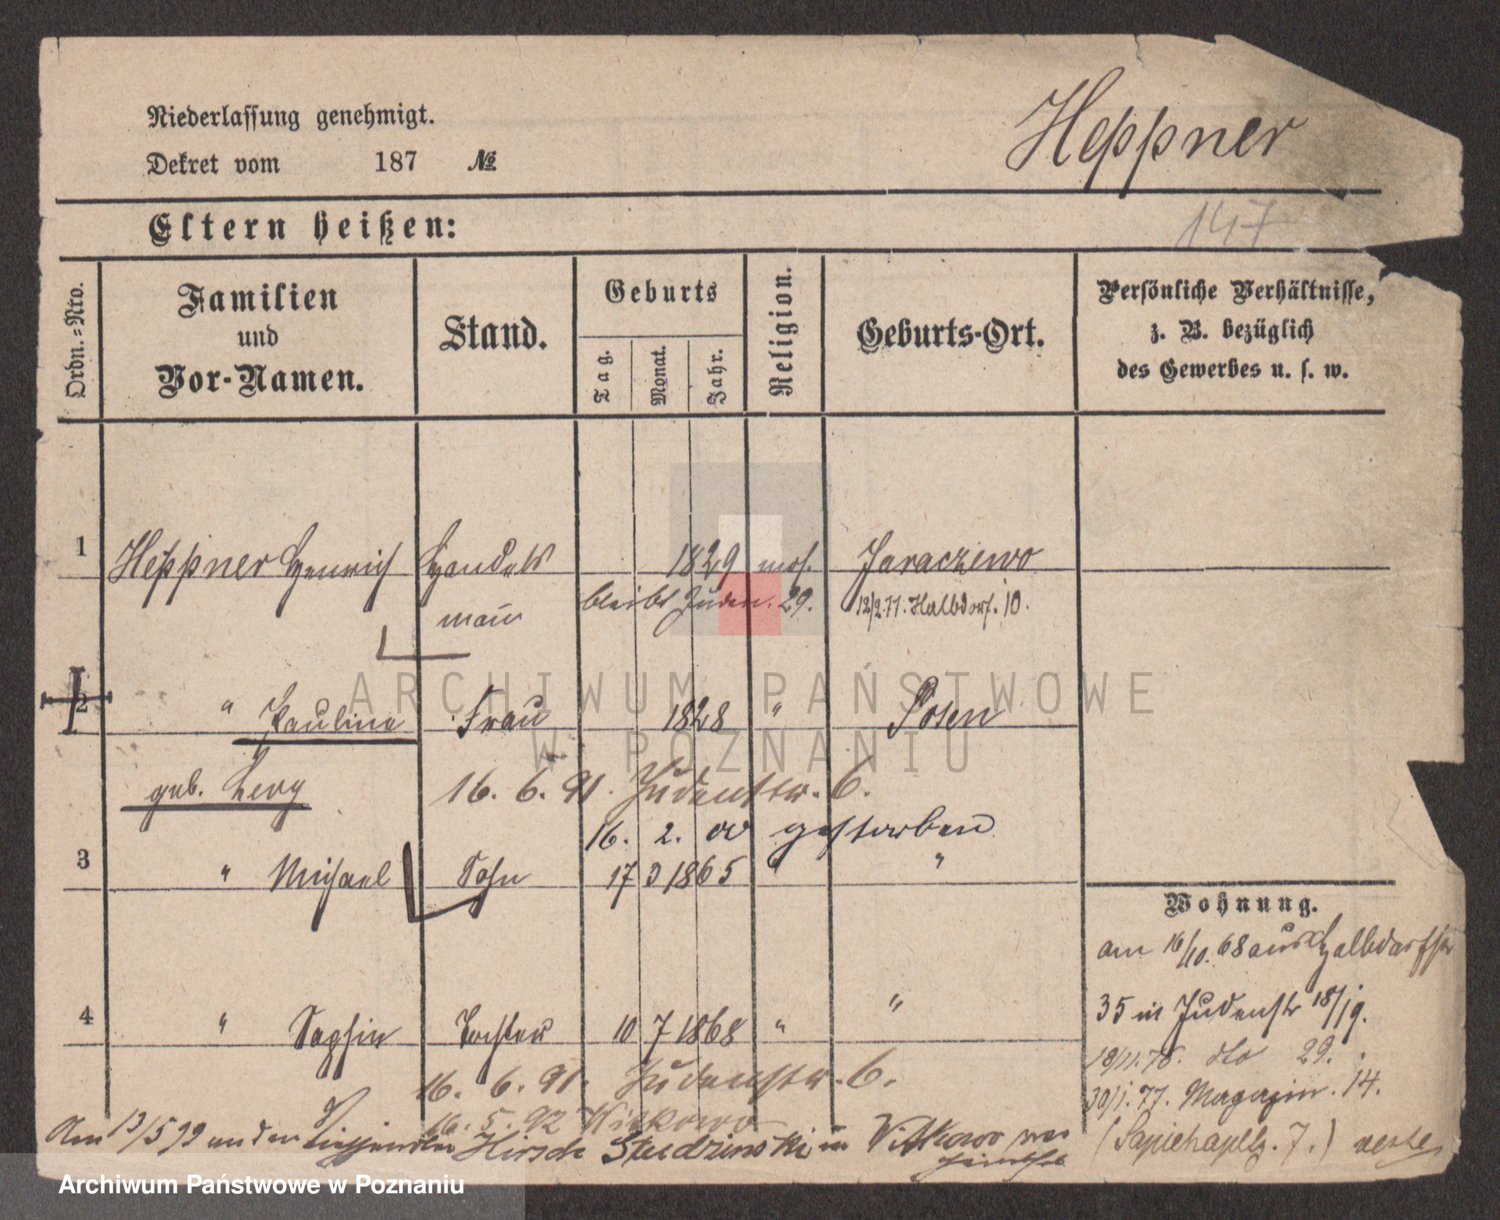 Niederlassung genehmigt.
Heppner
Dekret vom 187 №
147
Eltern heißen:
Ordn.=Nro.
Familien
und
Vor-Namen.
Stand.
Geburts
Tag.
Monat.
Jahr.
Religion.
Geburts-Ort.
Persönliche Verhältnisse,
z. B. bezüglich
des Gewerbes u. s. w.
1 Heppner Heinrich Handels 1829 mos. Jaraczewo
mann bleibt Juden. 29. 12/2.77. Halbdorf. 10.
2 " Pauline Frau 1828 " Posen
geb. Levy 16. 6. 91. Judenstr. 6.
16. 2. 00 gestorben
3 " Michael Sohn 17 3 1865 "
Wohnung.
am 16/10. 68 aus Halbdorfstr
35 in Judenstr 18/19.
4 " Tochter 10 7 1868 " "
dto 29.
16. 6. 91. Judenstr. 6.
30/1. 77. Magazin. 14.
16. 5. 92 Witkowo
Am 13/5 99 an den Hirsch Studzinski in Wittkowo
(Sapiehapltz. 7.)
ARCHIWUM PAŃSTWOWE
W POZNANIU
Archiwum Państwowe w Poznaniu